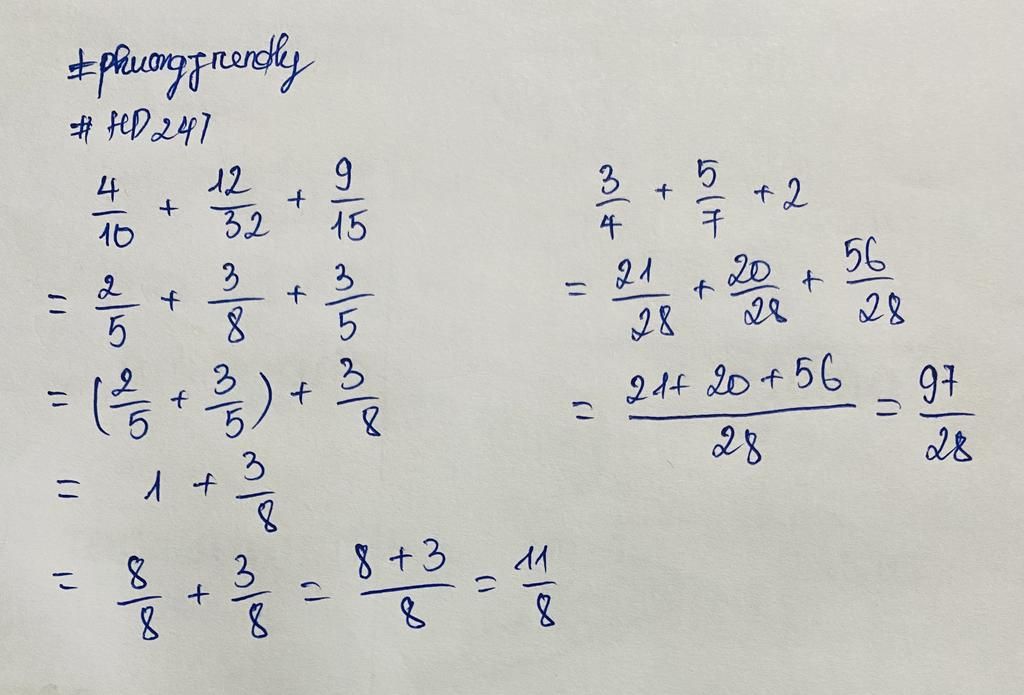 #phuongfriendly
#HD247
4/10 + 12/32 + 9/15
= 2/5 + 3/8 + 3/5
= (2/5 + 3/5) + 3/8
= 1 + 3/8
= 8/8 + 3/8 = (8 + 3)/8 = 11/8
3/4 + 5/7 + 2
= 21/28 + 20/28 + 56/28
= (21 + 20 + 56)/28 = 97/28